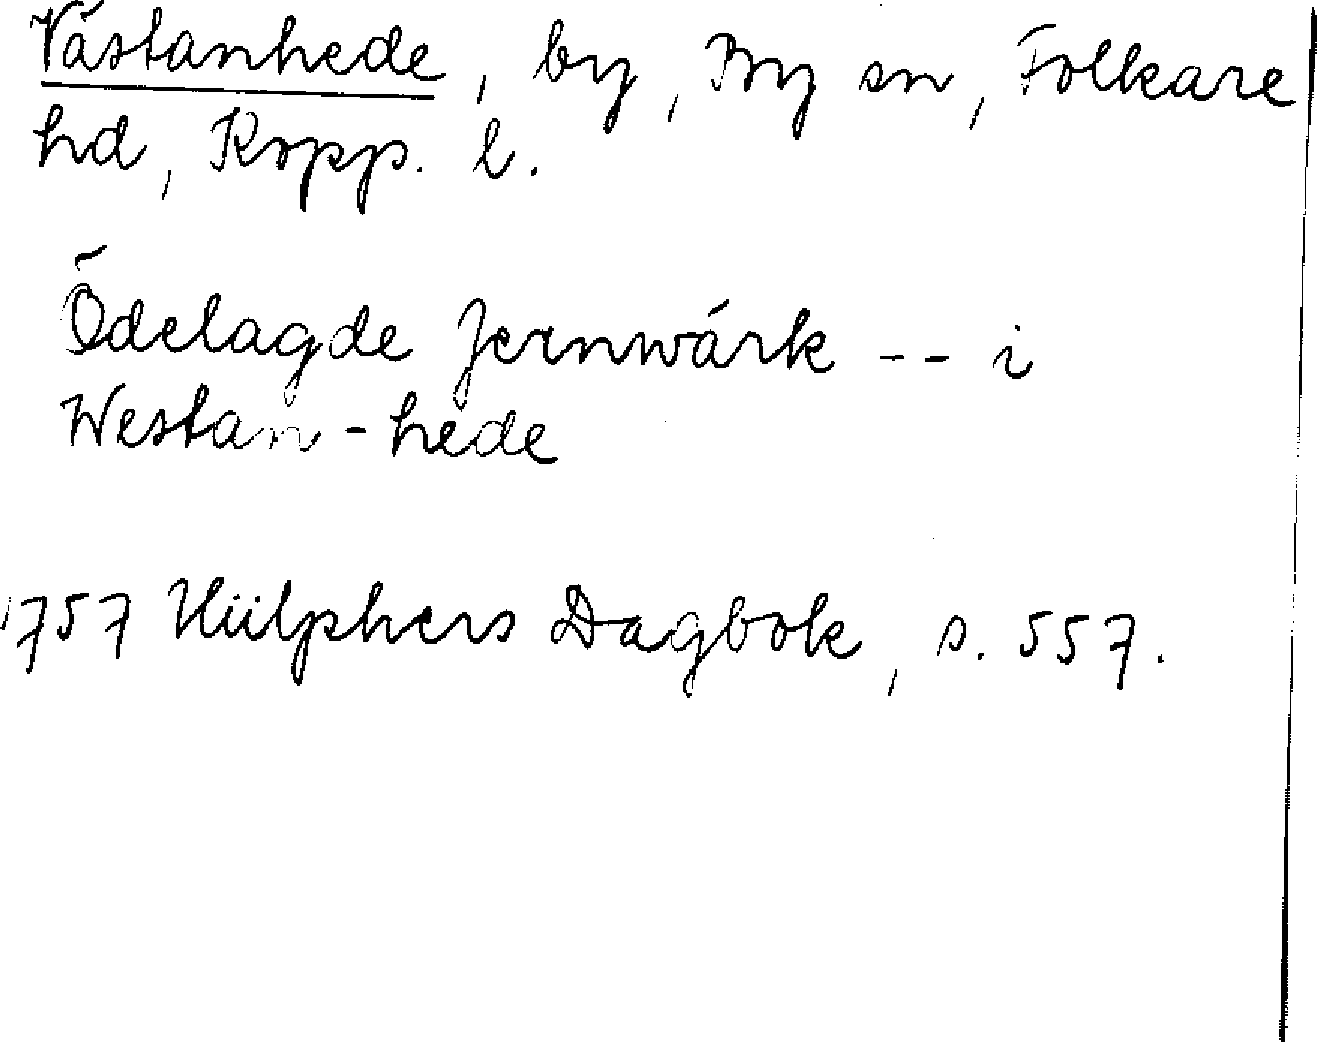 Västanhede, by, By sn, Folkare
hd, Kopp. l.
Ödelagde Jernwärk -- i
Westan-hede
1757 Hülphers Dagbok, s. 557.